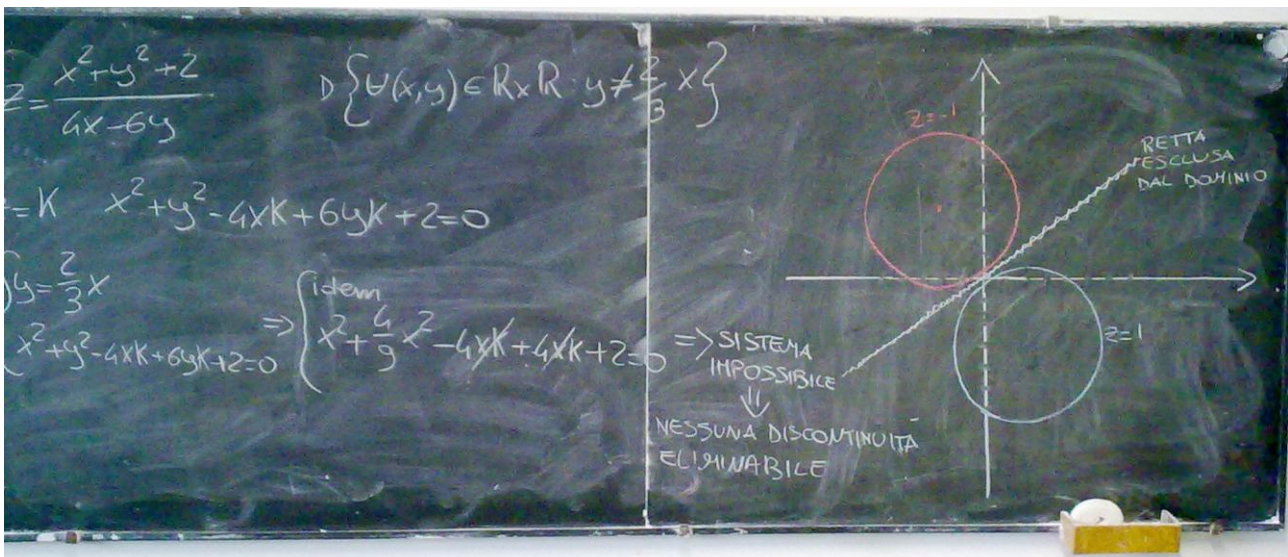 z = \frac{x^2+y^2+2}{4x-6y}
D {∀(x,y) ∈ R×R : y ≠ \frac{2}{3} x}
= K x^2+y^2-4xK+6yK+2=0
{ y = \frac{2}{3}x
x^2+y^2-4xK+6yK+2=0
=> { idem
x^2+\frac{4}{9}x^2-4xK+4xK+2=0
=> SISTEMA
IMPOSSIBILE
⇓
NESSUNA DISCONTINUITÀ
ELIMINABILE
z=-1
RETTA
ESCLUSA
DAL DOMINIO
z=1